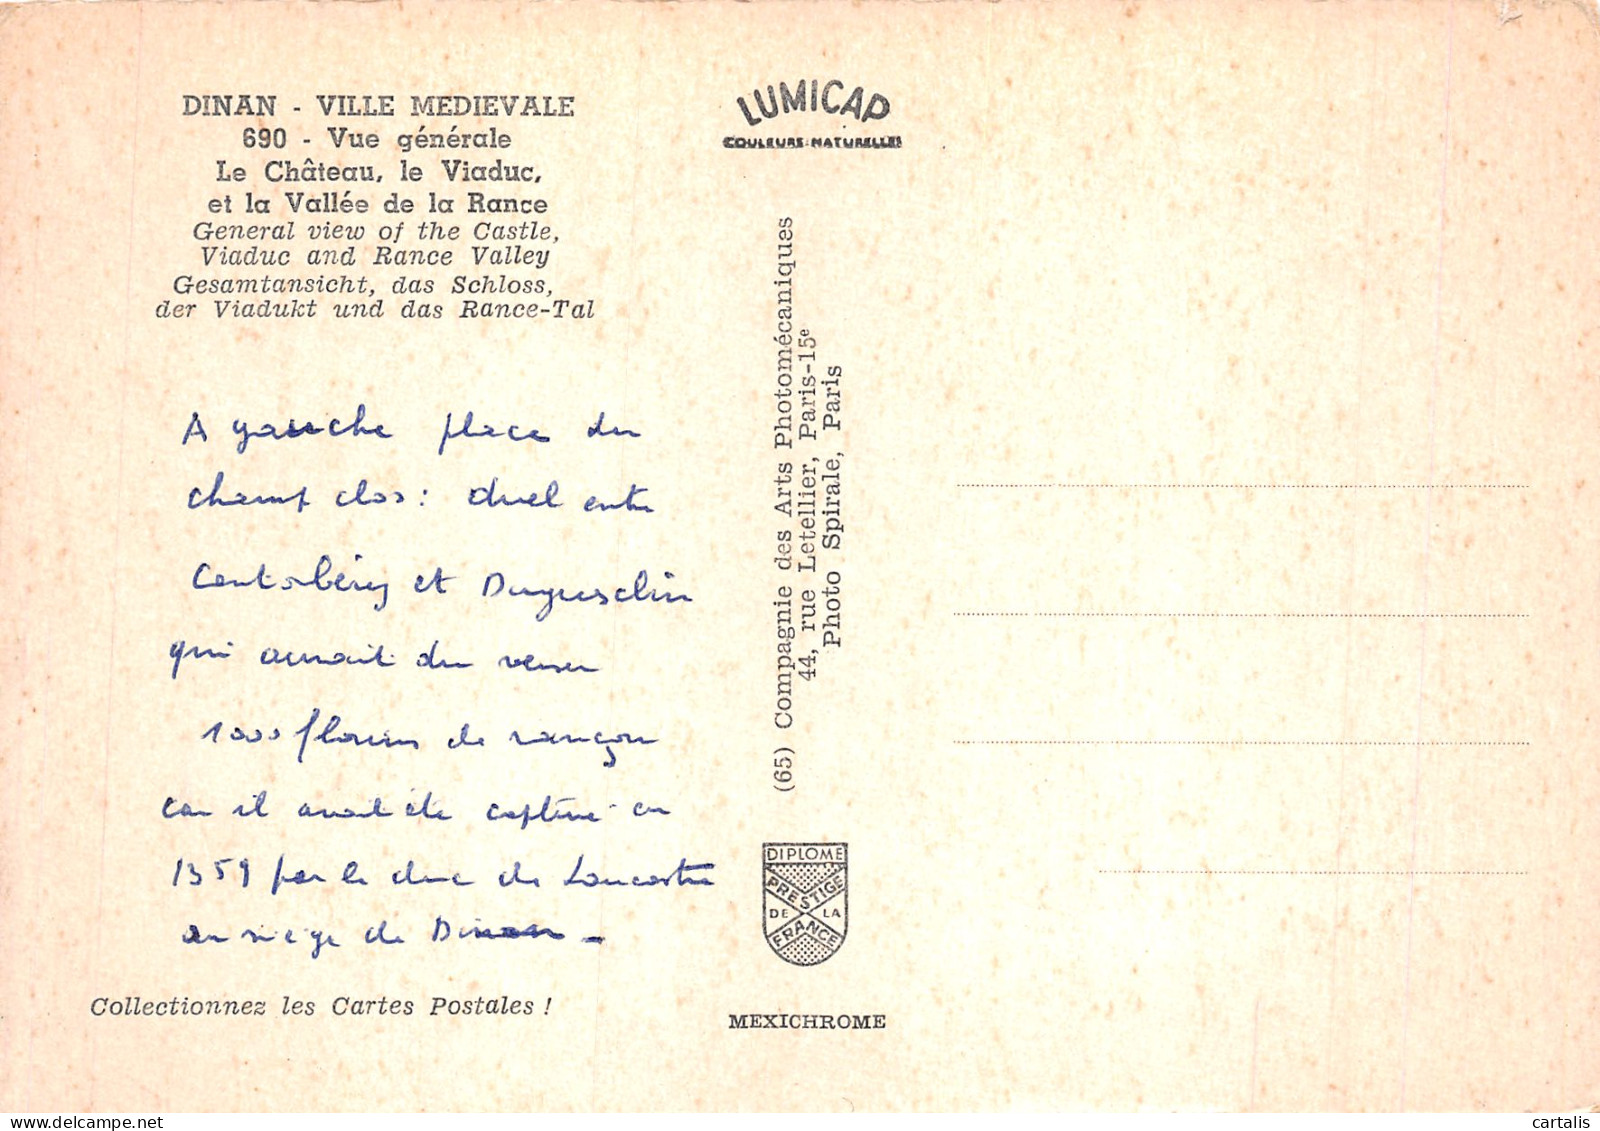 DINAN - VILLE MEDIEVALE
690 - Vue générale
Le Château, le Viaduc,
et la Vallée de la Rance
General view of the Castle,
Viaduc and Rance Valley
Gesamtansicht, das Schloss,
der Viadukt und das Rance-Tal
A gauche place du
champ clos : duel entre
Cantorbéry et Duguesclin
qui aurait du verser
1000 florins de rançon
car il avait été capturé en
1359 par le duc de Lancastre
au siège de Dinan -
Collectionnez les Cartes Postales !
LUMICAP
COULEURS NATURELLES
(65) Compagnie des Arts Photomécaniques
44, rue Letellier, Paris-15e
Photo Spirale, Paris
DIPLOME
PRESTIGE
DE LA
FRANCE
MEXICHROME
cartalis